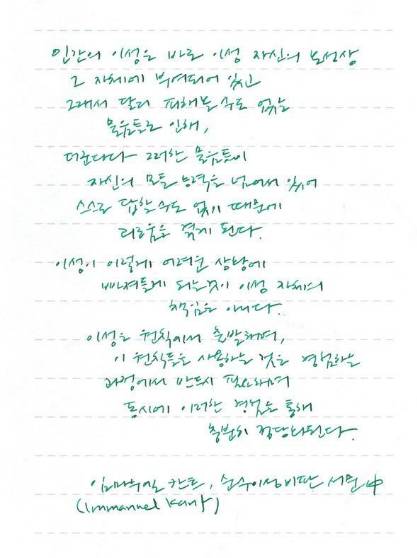 인간의 이성은 바로 이성 자신의 본성상
그 자체에 부여되어 있고
그래서 달리 피해볼 수도 없는
물음들로 인해,
더군다나 그러한 물음들이
자신의 모든 능력을 넘어서 있어
스스로 답할 수도 없기 때문에
괴로움을 겪게 된다.
이성이 이렇게 어려운 상황에
빠져들게 되는 것이 이성 자체의
책임은 아니다.
이성은 원칙에서 출발하며,
이 원칙들을 사용하는 것은 경험하는
과정에서 반드시 필요하며
동시에 이러한 경험을 통해
충분히 정당화된다.
임마누엘 칸트, 순수이성비판 서문 中
(Immanuel Kant)